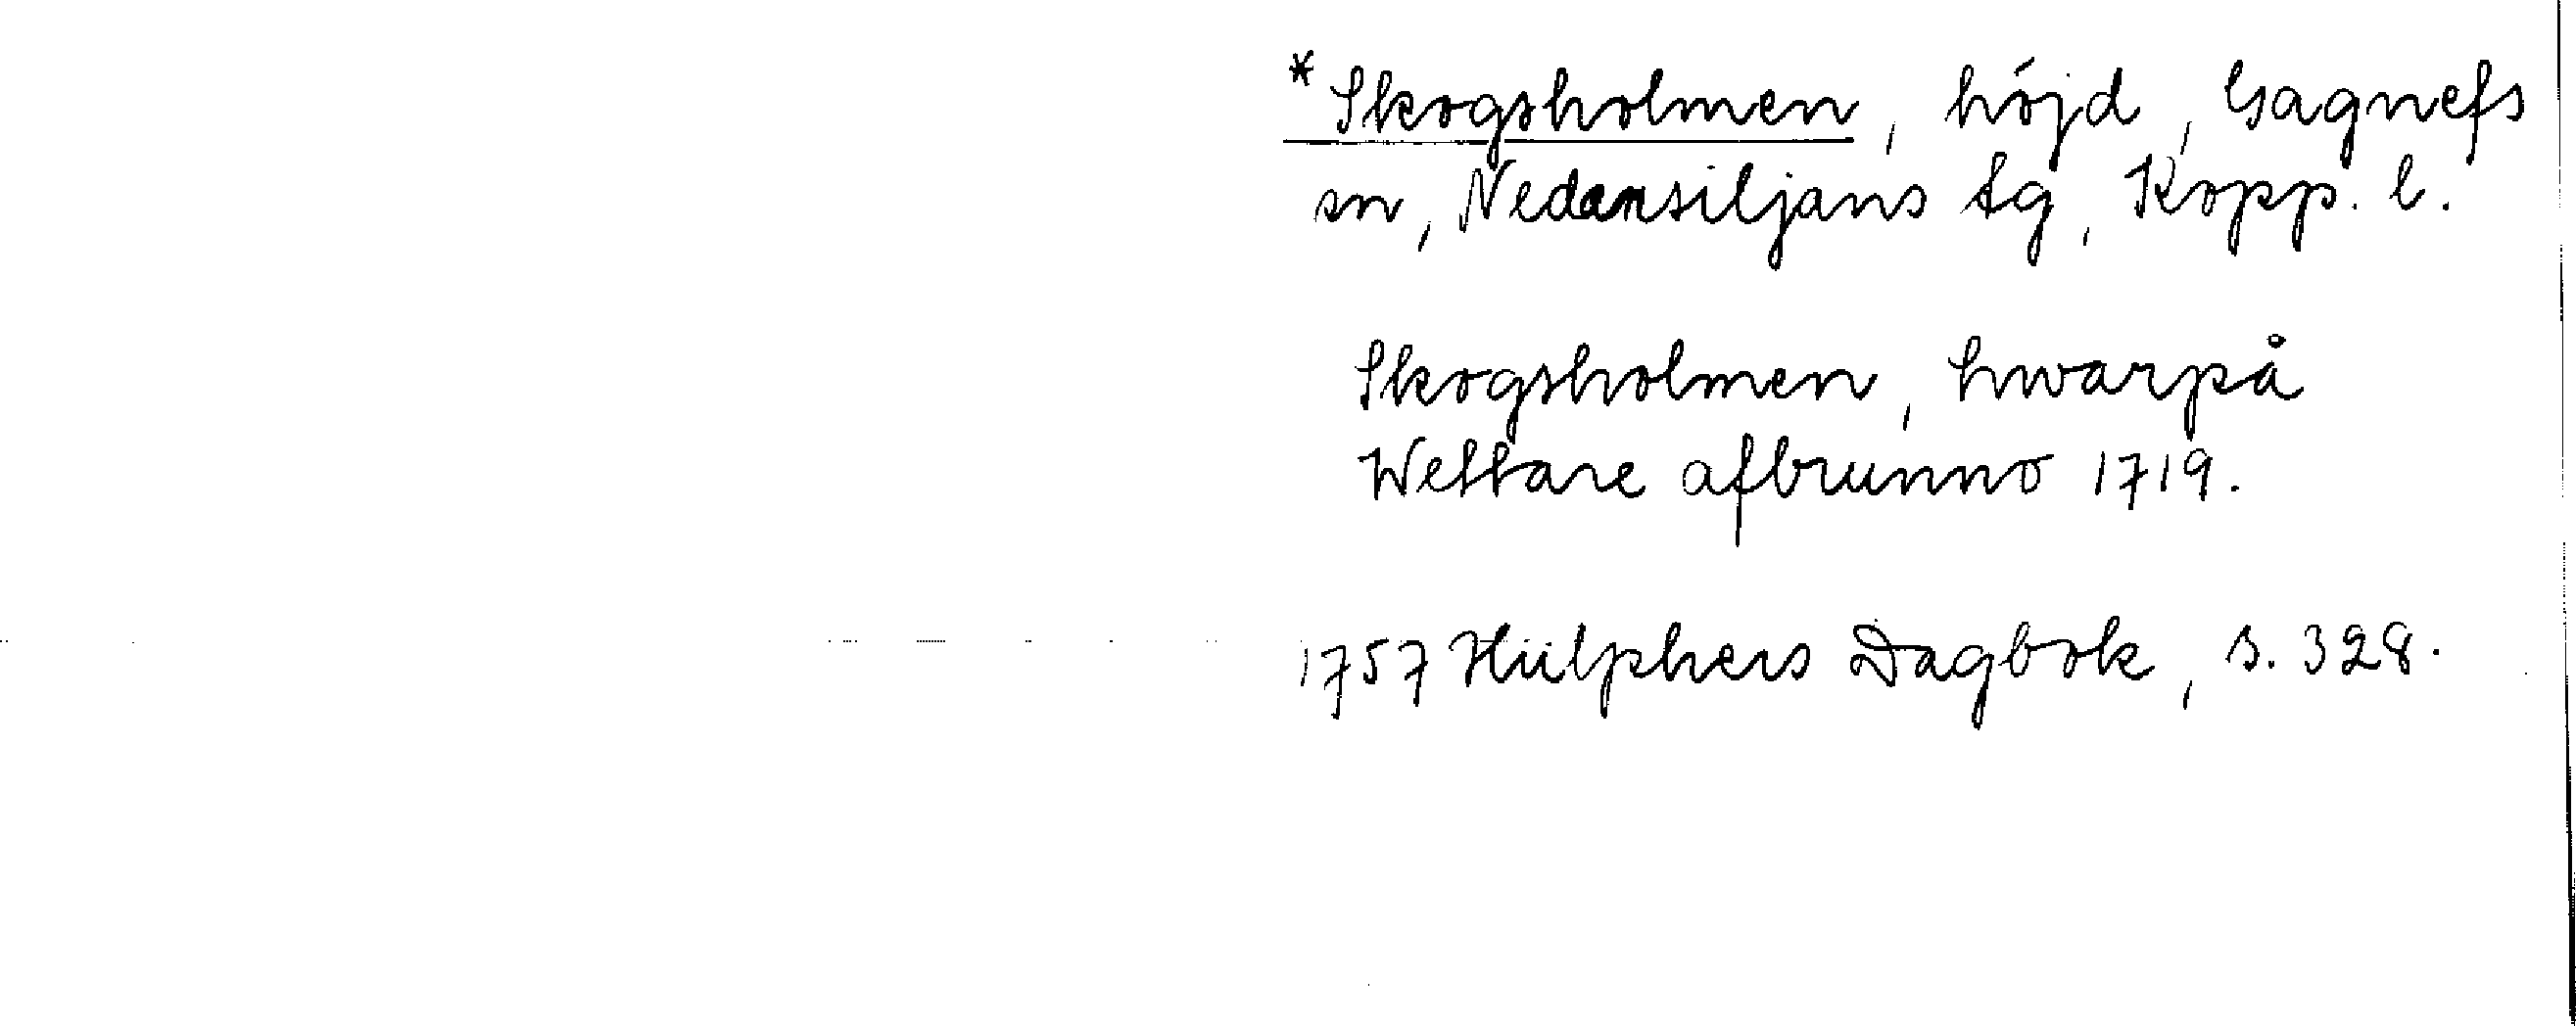 *Skogsholmen, höjd, Gagnefs
sn, Nedansiljans tg, Kopp. l.
Skogsholmen, hwarpå
Wettare afbrunno 1719.
1757 Hülphers Dagbok, s. 328.